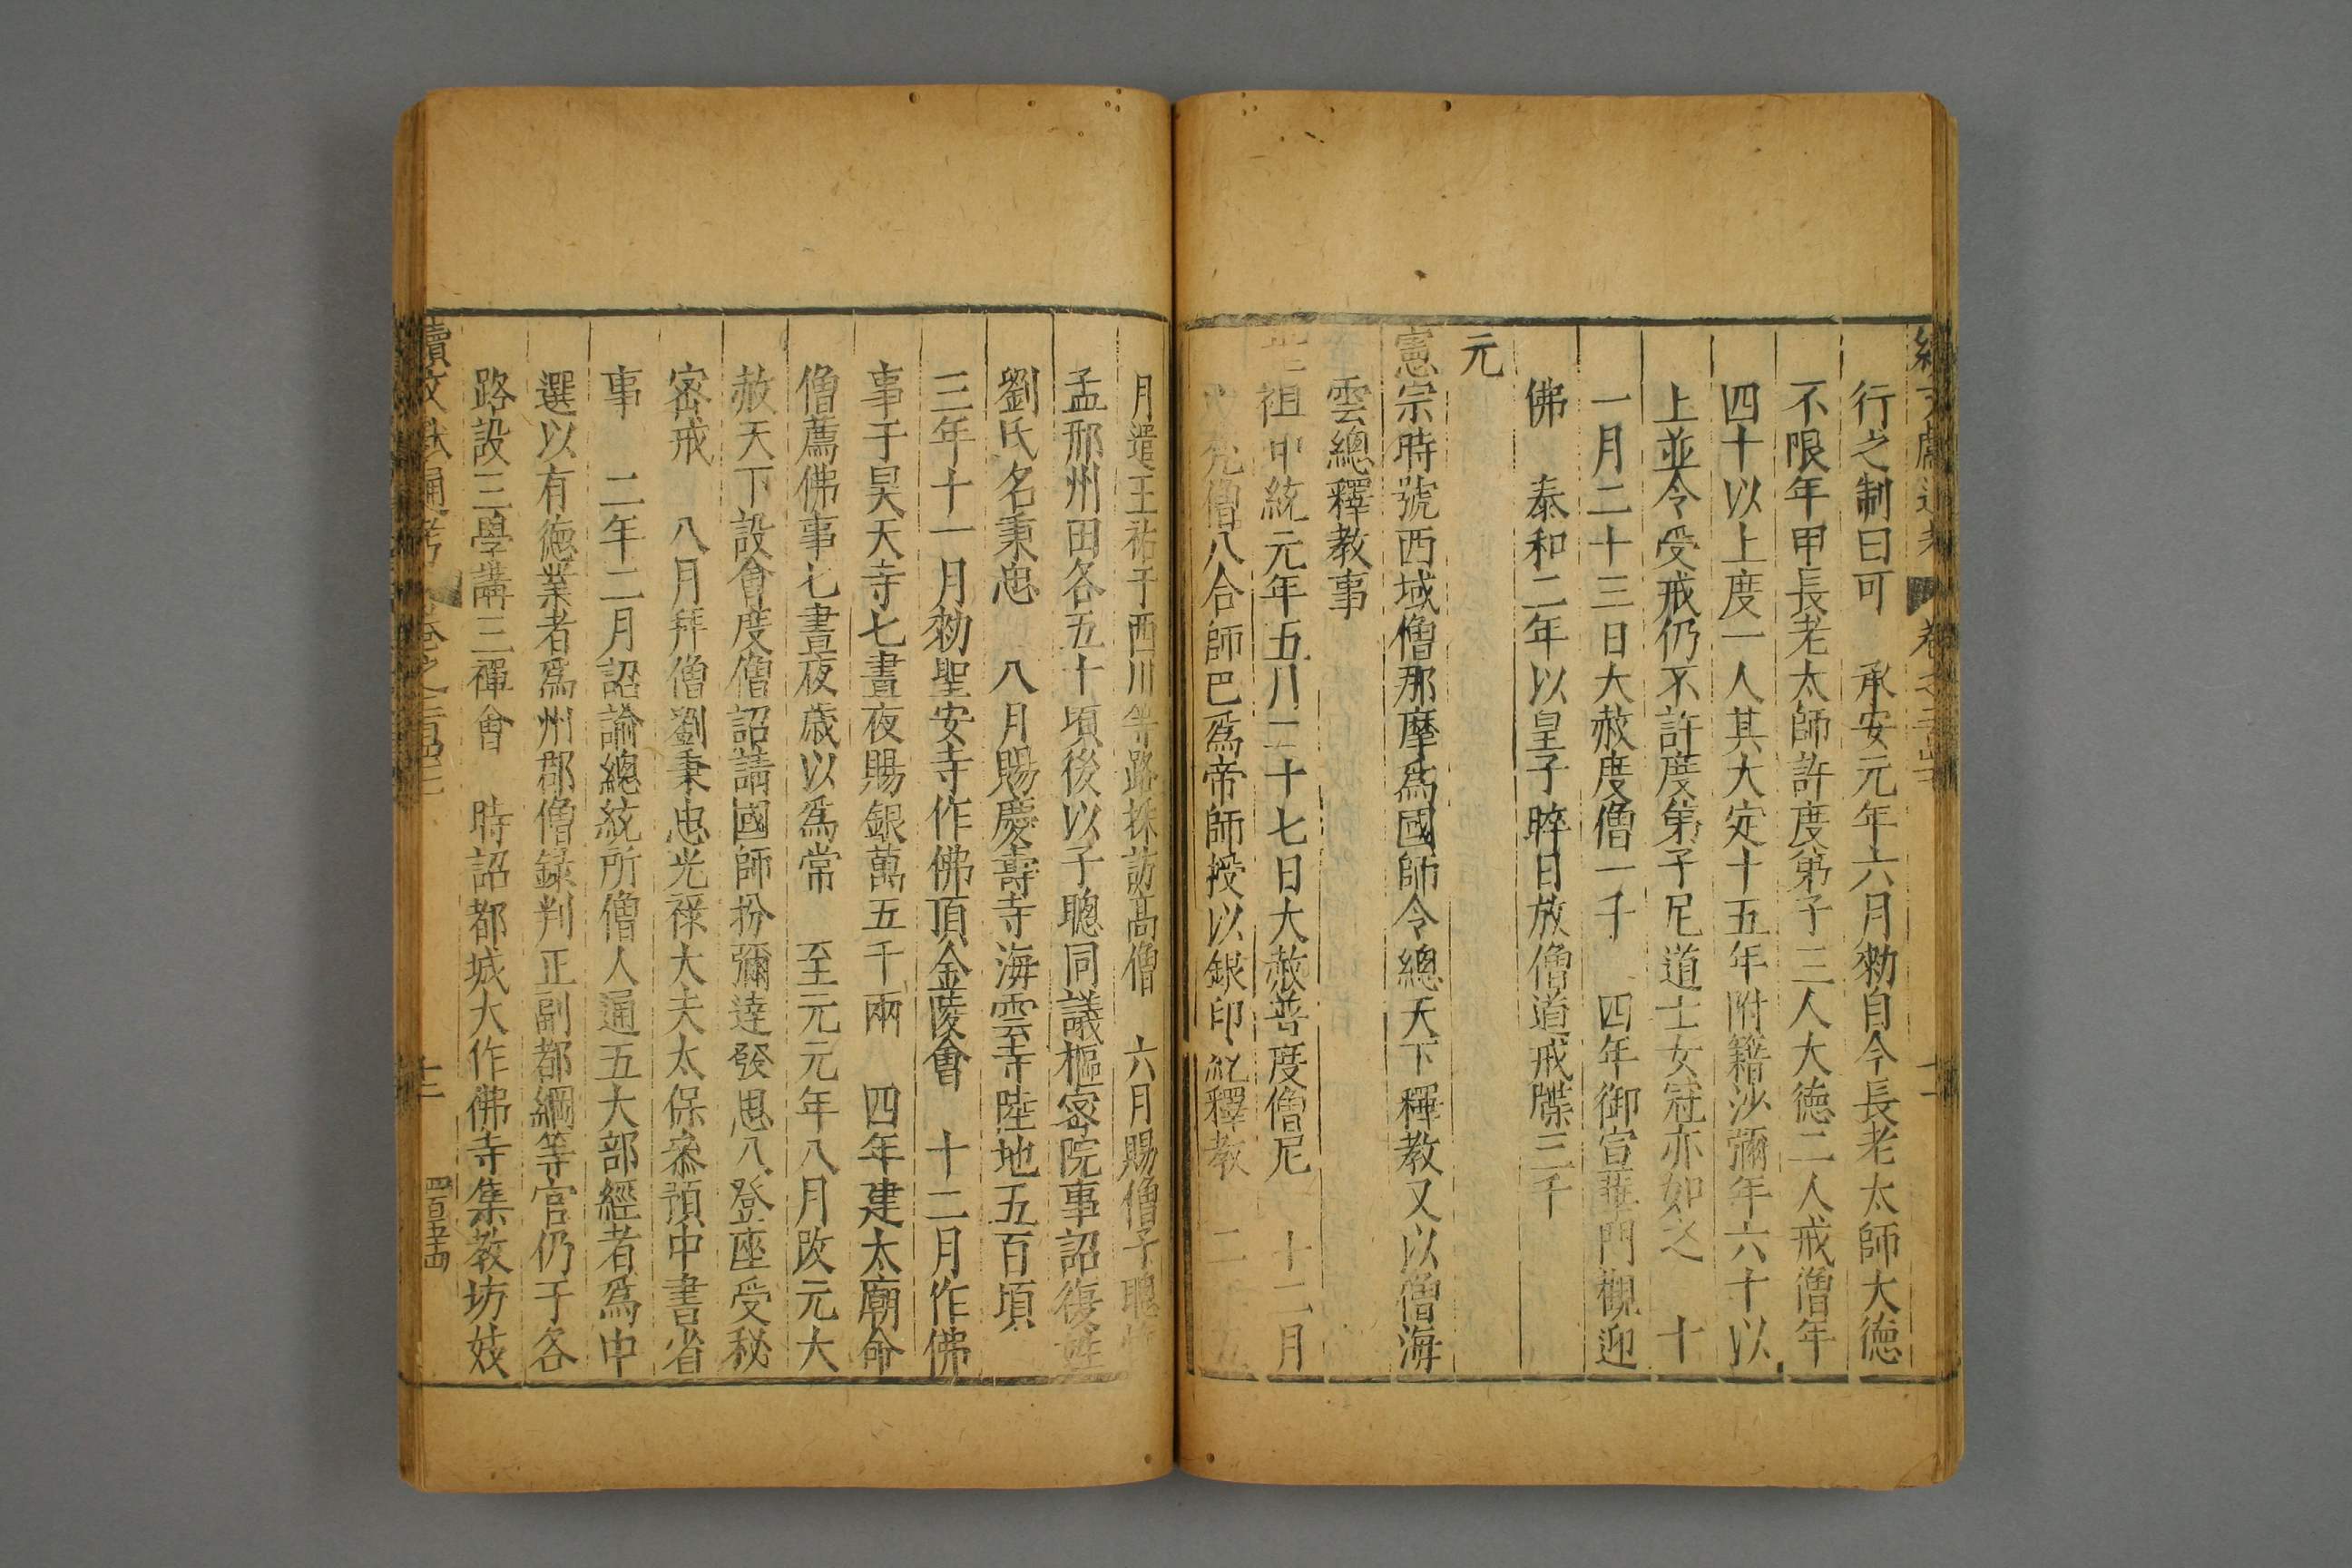 行之制曰可　承安元年六月勑自今長老太師大德
不限年甲長老太師許度第子三人大德二人戒僧年
四十以上度一人其大定十五年附籍沙彌年六十以
上並令受戒仍不許度第子尼道士女冠亦如之　十
一月二十三日大赦度僧一千　四年御宣華門觀迎
佛　泰和二年以皇子晬日放僧道戒牒三千
元
憲宗時號西域僧那摩爲國師令總天下釋教又以僧海
雲總釋教事
祖中統元年五月二十七日大赦普度僧尼　十二月
僧八合師巴爲帝師授以銀印統釋教　二
月遣王祐于西川等路採訪高僧　六月賜僧子聰
孟邢州田各五十頃後以子聰同議樞密院事詔復姓
劉氏名秉忠　八月賜慶壽寺海雲寺陸地五百頃
三年十一月勑聖安寺作佛頂金陵會　十二月作佛
事于昊天寺七晝夜賜銀萬五千兩　四年建太廟命
僧薦佛事七晝夜歲以爲常　至元元年八月改元大
赦天下設會度僧詔請國師扮彌達發思八登座受秘
密戒　八月拜僧劉秉忠光祿大夫太保叅預中書省
事　二年二月詔諭總統所僧人通五大部經者爲中
選以有德業者爲州郡僧錄判正副都綱等官仍于各
路設三學講三禪會　時詔都城大作佛寺集教坊妓
續文獻通考　卷之
十二
四百五十四